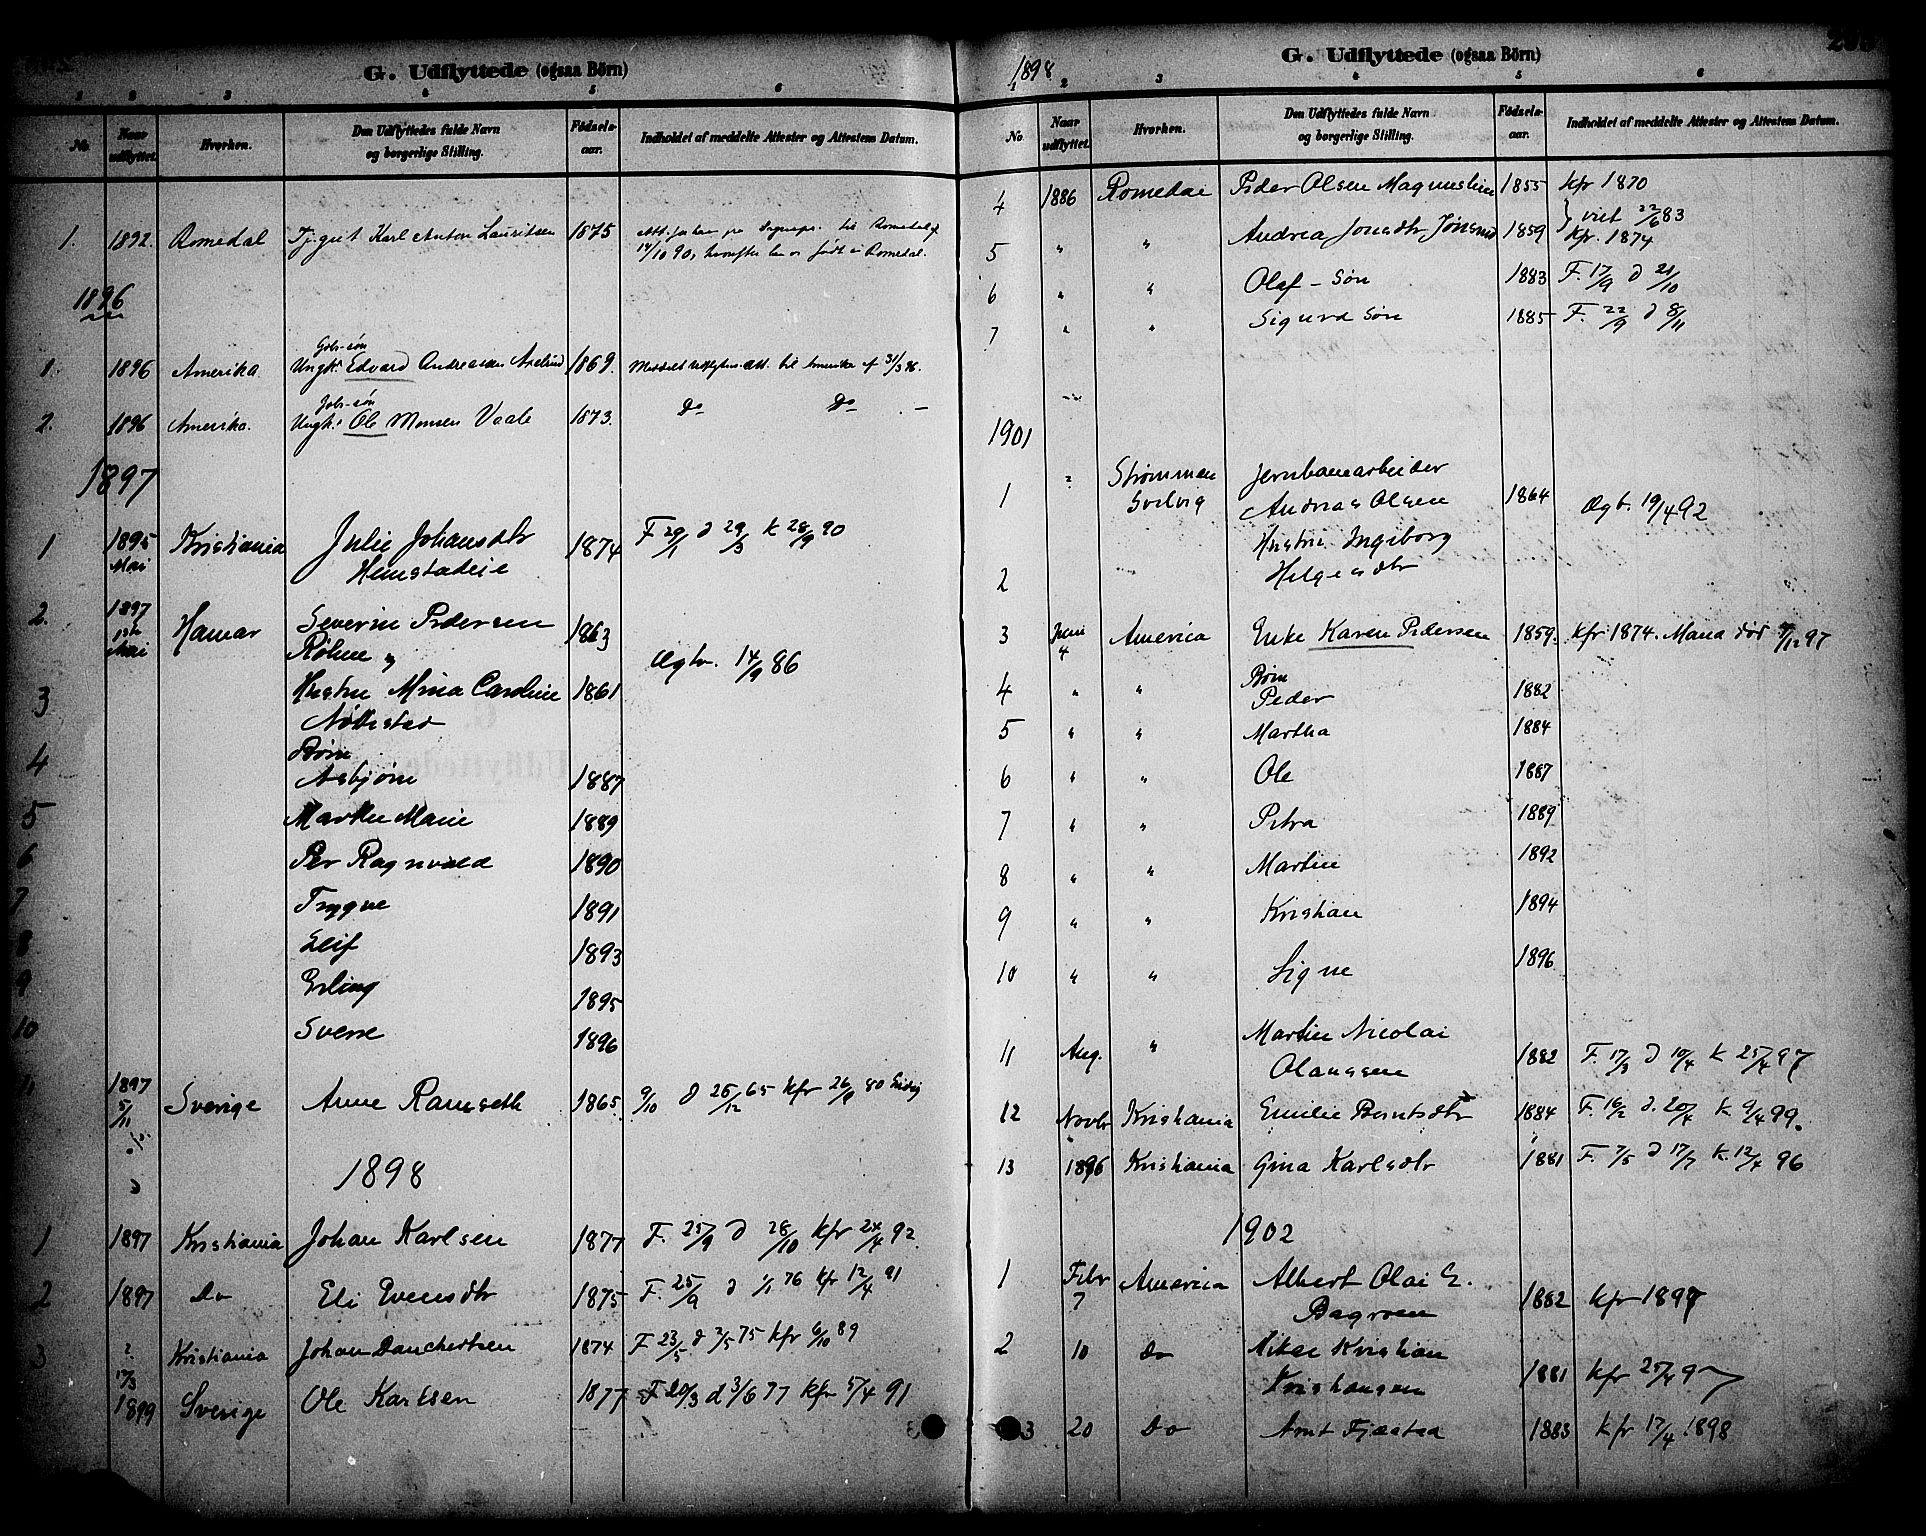 G. Udflyttede (ogsaa Börn)
1 2 3 4 5 6
No.
Naar udflyttet.
Hvorhen.
Den Udflyttedes fulde Navn og borgerlige Stilling.
Fødselsaar.
Indholdet af meddelte Attester og Attestens Datum.
1. 1892. Romedal Karl Anton Lauritsen 1875
14/10 90, født i Romedal.
1896
1. 1896 Amerika. Ungk. Edvard Andreassen 1869. til Amerika 31/3 96.
2. 1896 Amerika. Ungk. Ole Monsen Vaale 1873. Do Do —
1897
1 1895 Mai Kristiania Julie Johansdtr 1874 F 20/1 d 29/3 K 28/9 90
Hemstadeie
2. 1897 Mai Hamar Severin Pedersen 1863
Røhne
Ægtv. 14/9 86
3 Hustru Mina Caroline 1861
Nøttestad
4 Børn
Asbjørn 1887
5 Marthe Marie 1889
6 Per Ragnvald 1890
7 Trygve 1891
8 Leif 1893
9 Erling 1895
10 Sverre 1896
11 1897 5/11 Sverige Anne Ramseth 1865 9/10 d 26/12 65 Kfr 26/9 80
1898
1 1897 Kristiania Johan Karlsen 1877 F. 25/9 d 28/10 Kfr 24/4 92
2 1897 Do Eli Evensdtr 1875 F. 25/9 d 1/1 76 Kfr 12/4 91
3 ? Kristiania Johan Danchertsen 1874 F 23/5 d 3/5 75 Kfr 6/10 89
17/3 1899 Sverige Ole Karlsen 1877 F 20/3 d 3/6 77 Kfr 5/4 91
1898
G. Udflyttede (ogsaa Börn)
1 2 3 4 5 6
No.
Naar udflyttet.
Hvorhen.
Den Udflyttedes fulde Navn og borgerlige Stilling.
Fødselsaar.
Indholdet af meddelte Attester og Attestens Datum.
4 1886 Romedal Peder Olsen Magnushen 1855 Kfr 1870
viet 22/6 83
5 " " Andrea Jonsdtr 1859 Kfr. 1874
6 " " Olaf - Søn 1883 F. 17/9 d 21/10
7 " " Sigurd Søn 1885 F. 22/9 d 8/11
1901
1 ? Strømmen Jernbanearbeider
Andreas Olsen 1864 Ægt. 19/4 92
2 Hustru Ingeborg
Helgesdtr
3 Juni 4 America Enke Karen Pedersen 1859. Kfr 1874. Mand død 4/12 97
4 " " Børn
Peder 1882
5 " " Martha 1884
6 " " Ole 1887
7 " " Petra 1889
8 " " Martin 1892
9 " " Kristian 1894
10 " " Signe 1896
11 Aug. " Martin Nicolai
Olaussen 1882 F. 17/3 d 10/4 K 25/4 97
12 Novbr Kristiania Emilie Berntsdtr 1884 F. 16/2 d. 20/4 K. 9/4 99.
13 1896 Kristiania Gina Karlsdtr 1881 F. 7/5 d 17/7 K. 12/4 96
1902
1 Febr 7 America Albert Olai E.
Bagroen 1882 Kfr 1897
2 10 Do Kristian
Kristiansen 1881 Kfr 25/4 97
3 20 Do Arnt Fjæstad 1883 Kfr 17/4 1898